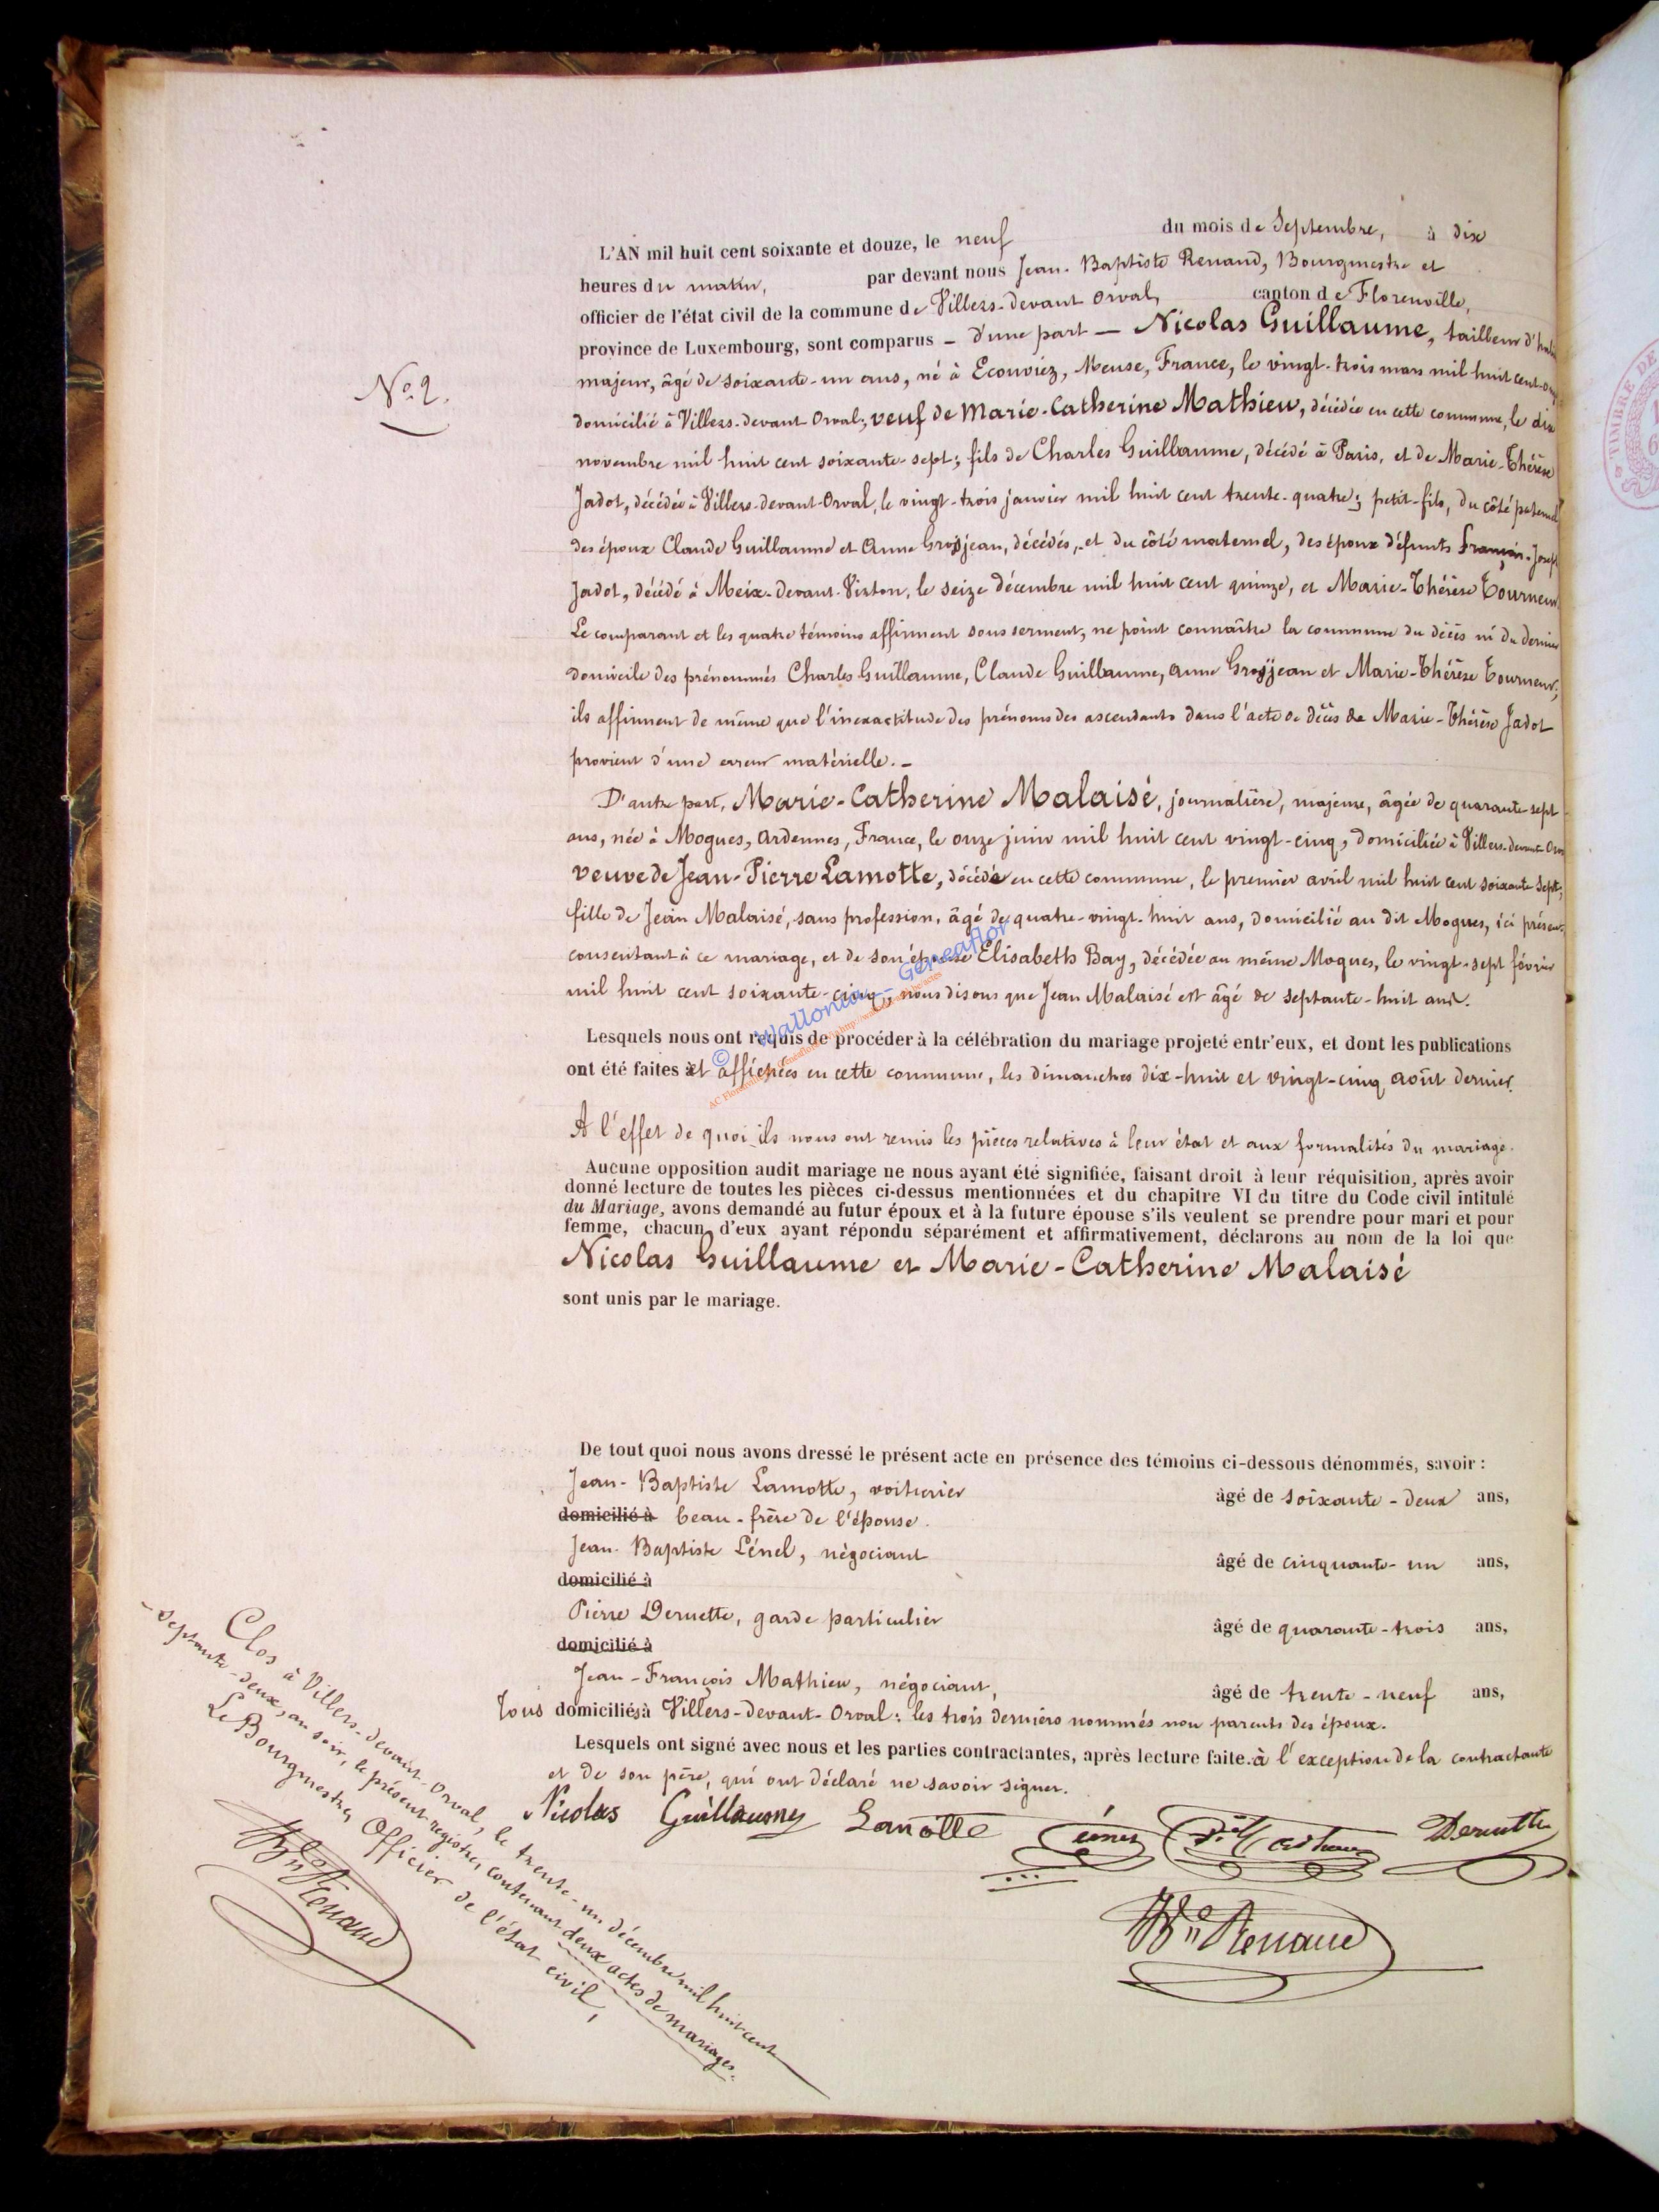 L'AN mil huit cent soixante et douze, le neuf du mois de Septembre, à dix
heures du matin, par devant nous Jean-Baptiste Renaud, Bourgmestre et
officier de l'état civil de la commune de Villers-devant Orval, canton de Florenville,
province de Luxembourg, sont comparus – d'une part – Nicolas Guillaume, tailleur d'habits
majeur, âgé de soixante-un ans, né à Ecouviez, Meuse, France, le vingt-trois mars mil huit cent-onze,
domicilié à Villers-devant Orval; veuf de Marie-Catherine Mathieu, décédée en cette commune, le dix
novembre mil huit cent soixante-sept; fils de Charles Guillaume, décédé à Paris, et de Marie-Thérèse
Jadot, décédée à Villers-devant-Orval, le vingt-trois janvier mil huit cent trente-quatre; petit-fils, du côté paternel
des époux Claude Guillaume et Anne Grosjean, décédés, et du côté maternel, des époux défunts François-Joseph
Jadot, décédé à Meix-devant-Virton, le seize décembre mil huit cent quinze, et Marie-Thérèse Tourneur.
Le comparant et les quatre témoins affirment sous serment, ne point connaître la commune du décès ni du dernier
domicile des prénommés Charles Guillaume, Claude Guillaume, Anne Grosjean et Marie-Thérèse Tourneur;
ils affirment de même que l'inexactitude des prénoms des ascendants dans l'acte de décès de Marie-Thérèse Jadot
provient d'une erreur matérielle. –
D'autre part, Marie-Catherine Malaisé, journalière, majeure, âgée de quarante-sept
ans, née à Mogues, Ardennes, France, le onze juin mil huit cent vingt-cinq, domiciliée à Villers-devant-Orval
veuve de Jean-Pierre Lamotte, décédé en cette commune, le premier avril mil huit cent soixante sept;
fille de Jean Malaisé, sans profession, âgé de quatre-vingt-huit ans, domicilié au dit Mogues, ici présent,
consentant à ce mariage, et de son épouse Elisabeth Bay, décédée au même Mogues, le vingt-sept février
mil huit cent soixante-cinq, nous disons que Jean Malaisé est âgé de septante-huit ans.
Lesquels nous ont requis de procéder à la célébration du mariage projeté entr'eux, et dont les publications
ont été faites et affichées en cette commune, les dimanches dix-huit et vingt-cinq août dernier.
A l'effet de quoi ils nous ont remis les pièces relatives à leur état et aux formalités du mariage.
Aucune opposition audit mariage ne nous ayant été signifiée, faisant droit à leur réquisition, après avoir
donné lecture de toutes les pièces ci-dessus mentionnées et du chapitre VI du titre du Code civil intitulé
du Mariage, avons demandé au futur époux et à la future épouse s'ils veulent se prendre pour mari et pour
femme, chacun d'eux ayant répondu séparément et affirmativement, déclarons au nom de la loi que
Nicolas Guillaume et Marie-Catherine Malaisé
sont unis par le mariage.
De tout quoi nous avons dressé le présent acte en présence des témoins ci-dessous dénommés, savoir :
Jean-Baptiste Lamotte, voiturier âgé de soixante-deux ans,
domicilié à beau-frère de l'épouse.
Jean-Baptiste Lénel, négociant âgé de cinquante-un ans,
domicilié à
Pierre Deruette, garde particulier âgé de quarante-trois ans,
domicilié à
Jean-François Mathieu, négociant, âgé de trente-neuf ans,
Tous domiciliés à Villers-devant-Orval; les trois derniers nommés non parents des époux.
Lesquels ont signé avec nous et les parties contractantes, après lecture faite. à l'exception de la contractante
et de son père, qui ont déclaré ne savoir signer.
Nicolas Guillaume Lamotte Deruette
Renaud
No. 2.
Clos à Villers-devant-Orval, le trente-un décembre mil huit cent
septante-deux, au soir, le présent registre, contenant deux actes de mariages.
Le Bourgmestre, Officier de l'état civil,
Renaud
© Wallonia – Geneaflor
TIMBRE DE